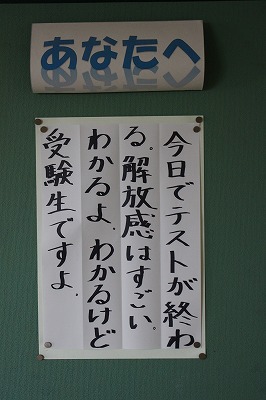 あなたへ
今日でテストが終わ
る。解放感はすごい。
わかるよ、わかるけど
受験生ですよ.